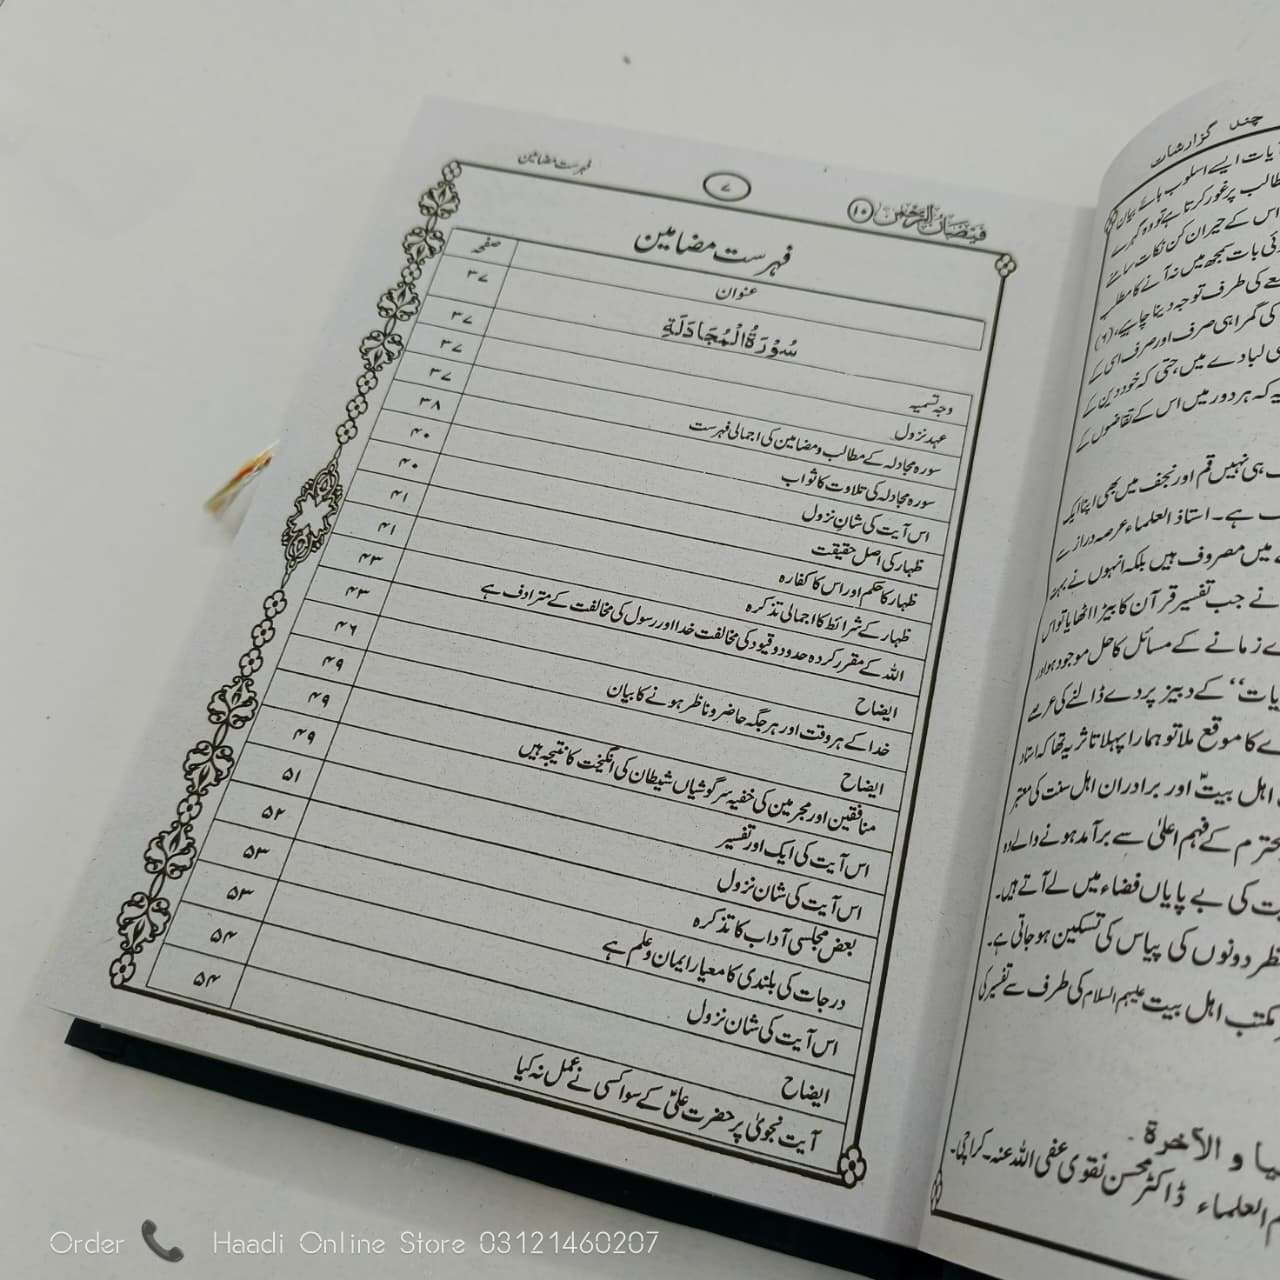 فیضان الرحمٰن ۱۰ ۷ فہرست مضامین
فہرست مضامین
عنوان صفحہ
سُوْرَۃُ الْمُجَادَلَۃِ ۳۷
وجہ تسمیہ ۳۷
عہد نزول ۳۷
سورہ مجادلہ کے مطالب و مضامین کی اجمالی فہرست ۳۷
سورہ مجادلہ کی تلاوت کا ثواب ۳۸
اس آیت کی شانِ نزول ۴۰
ظہار کی اصل حقیقت ۴۰
ظہار کا حکم اور اس کا کفارہ ۴۱
ظہار کے شرائط کا اجمالی تذکرہ ۴۱
اللہ کے مقرر کردہ حدود و قیود کی مخالفت خدا اور رسول کی مخالفت کے مترادف ہے ۴۳
ایضاح ۴۳
خدا کے ہر وقت اور ہر جگہ حاضر و ناظر ہونے کا بیان ۴۶
ایضاح ۴۹
منافقین اور مجرمین کی خفیہ سرگوشیاں شیطان کی انگیخت کا نتیجہ ہیں ۴۹
اس آیت کی ایک اور تفسیر ۴۹
اس آیت کی شان نزول ۵۱
بعض مجلسی آداب کا تذکرہ ۵۲
درجات کی بلندی کا معیار ایمان و علم ہے ۵۳
اس آیت کی شان نزول ۵۳
ایضاح ۵۴
آیت نجویٰ پر حضرت علیؑ کے سوا کسی نے عمل نہ کیا ۵۴
چند گزارشات
یات ایسے اسلوب ہائے بیان
طالب پر غور کرتا ہے تو وہ گہرے
اس کے حیران کن نکات سامنے
ئی بات سمجھ میں نہ آنے کا مطلب
ے کی طرف توجہ دینا چاہیے، (۶)
کی گمراہی صرف اور صرف ای کے
ی لبادے میں، حتی کہ خود دین کے
یہ کہ ہر دور میں اس کے تقاضوں کے
ہی نہیں قم اور نجف میں بھی اپنا ایک
ہے۔ استاذ العلماء عرصہ دراز سے
ے میں مصروف ہیں بلکہ انہوں نے بہت
نے جب تفسیر قرآن کا بیڑا اٹھایا تو اس
ے زمانے کے مسائل کا حل موجود ہو اور
یات‘‘ کے دبیز پردے ڈالنے کی عرصے
ے کا موقع ملا تو ہمارا پہلا تاثر یہ تھا کہ استاد
اہل بیتؑ اور برادران اہل سنت کی معتبر
محترم کے فہم اعلیٰ سے برآمد ہونے والے وہ
ت کی بے پایاں فضاء میں لے آتے ہیں۔
نظر دونوں کی پیاس کی تسکین ہو جاتی ہے۔
مکتب اہل بیت علیہم السلام کی طرف سے تفسیر کی
یا و الآخرۃ۔
م العلماء ڈاکٹر محسن نقوی عفی اللہ عنہ۔ کراچی۔
Order Haadi Online Store 03121460207